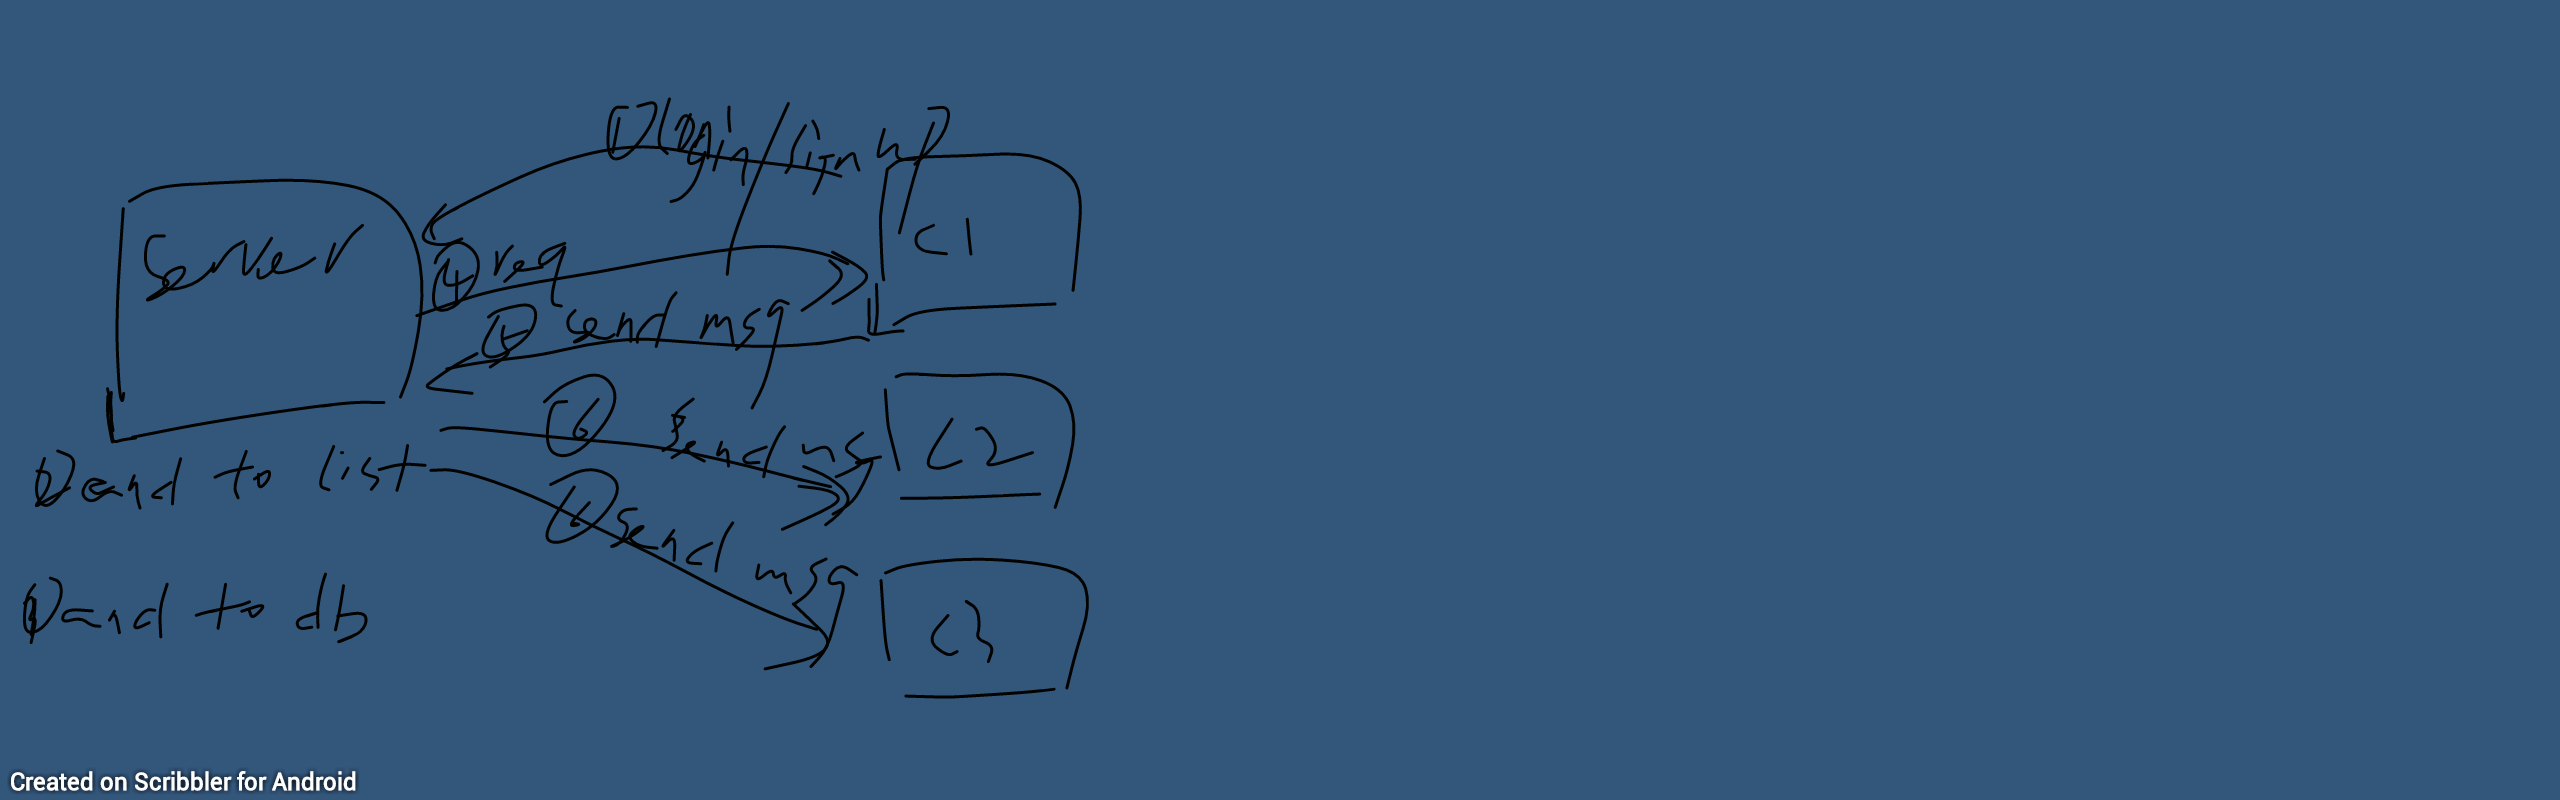 ① login/sign up
Server
C1
④ req
⑤ send msg
⑥ send msg
C2
② and to list
⑥ send msg
③ and to db
C3
Created on Scribbler for Android